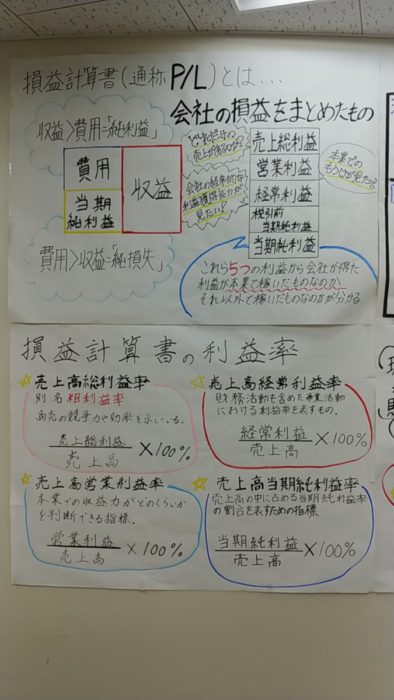 損益計算書(通称P/L)とは…
会社の損益をまとめたもの
収益>費用=「純利益」
費用
当期
純利益
収益
費用>収益=「純損失」
どれだけの
売上があるのか?
会社の経常的な
利益獲得能力が
見たい?
売上総利益
営業利益
経常利益
税引前
当期純利益
当期純利益
本業での
もうけが見たい?
これら5つの利益から会社が得た
利益が本業で稼いだものなのか、
それ以外で稼いだものなのかが分かる
損益計算書の利益率
売上高総利益率
別名粗利益率
商売の競争力や効率を示している。
売上総利益
売上高
×100%
売上高経常利益率
財務活動も含めた事業活動
における利益率を表すもの。
経常利益
売上高
×100%
売上高営業利益率
本業での収益力がどのくらいか
を判断できる指標。
営業利益
売上高
×100%
売上高当期純利益率
売上高の中に占める当期純利益率
の割合を表すための指標
当期純利益
売上高
×100%